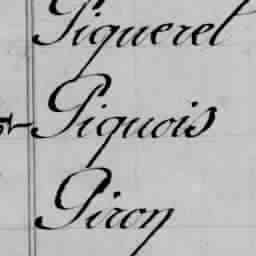 Piqueret
Piquois
Piron